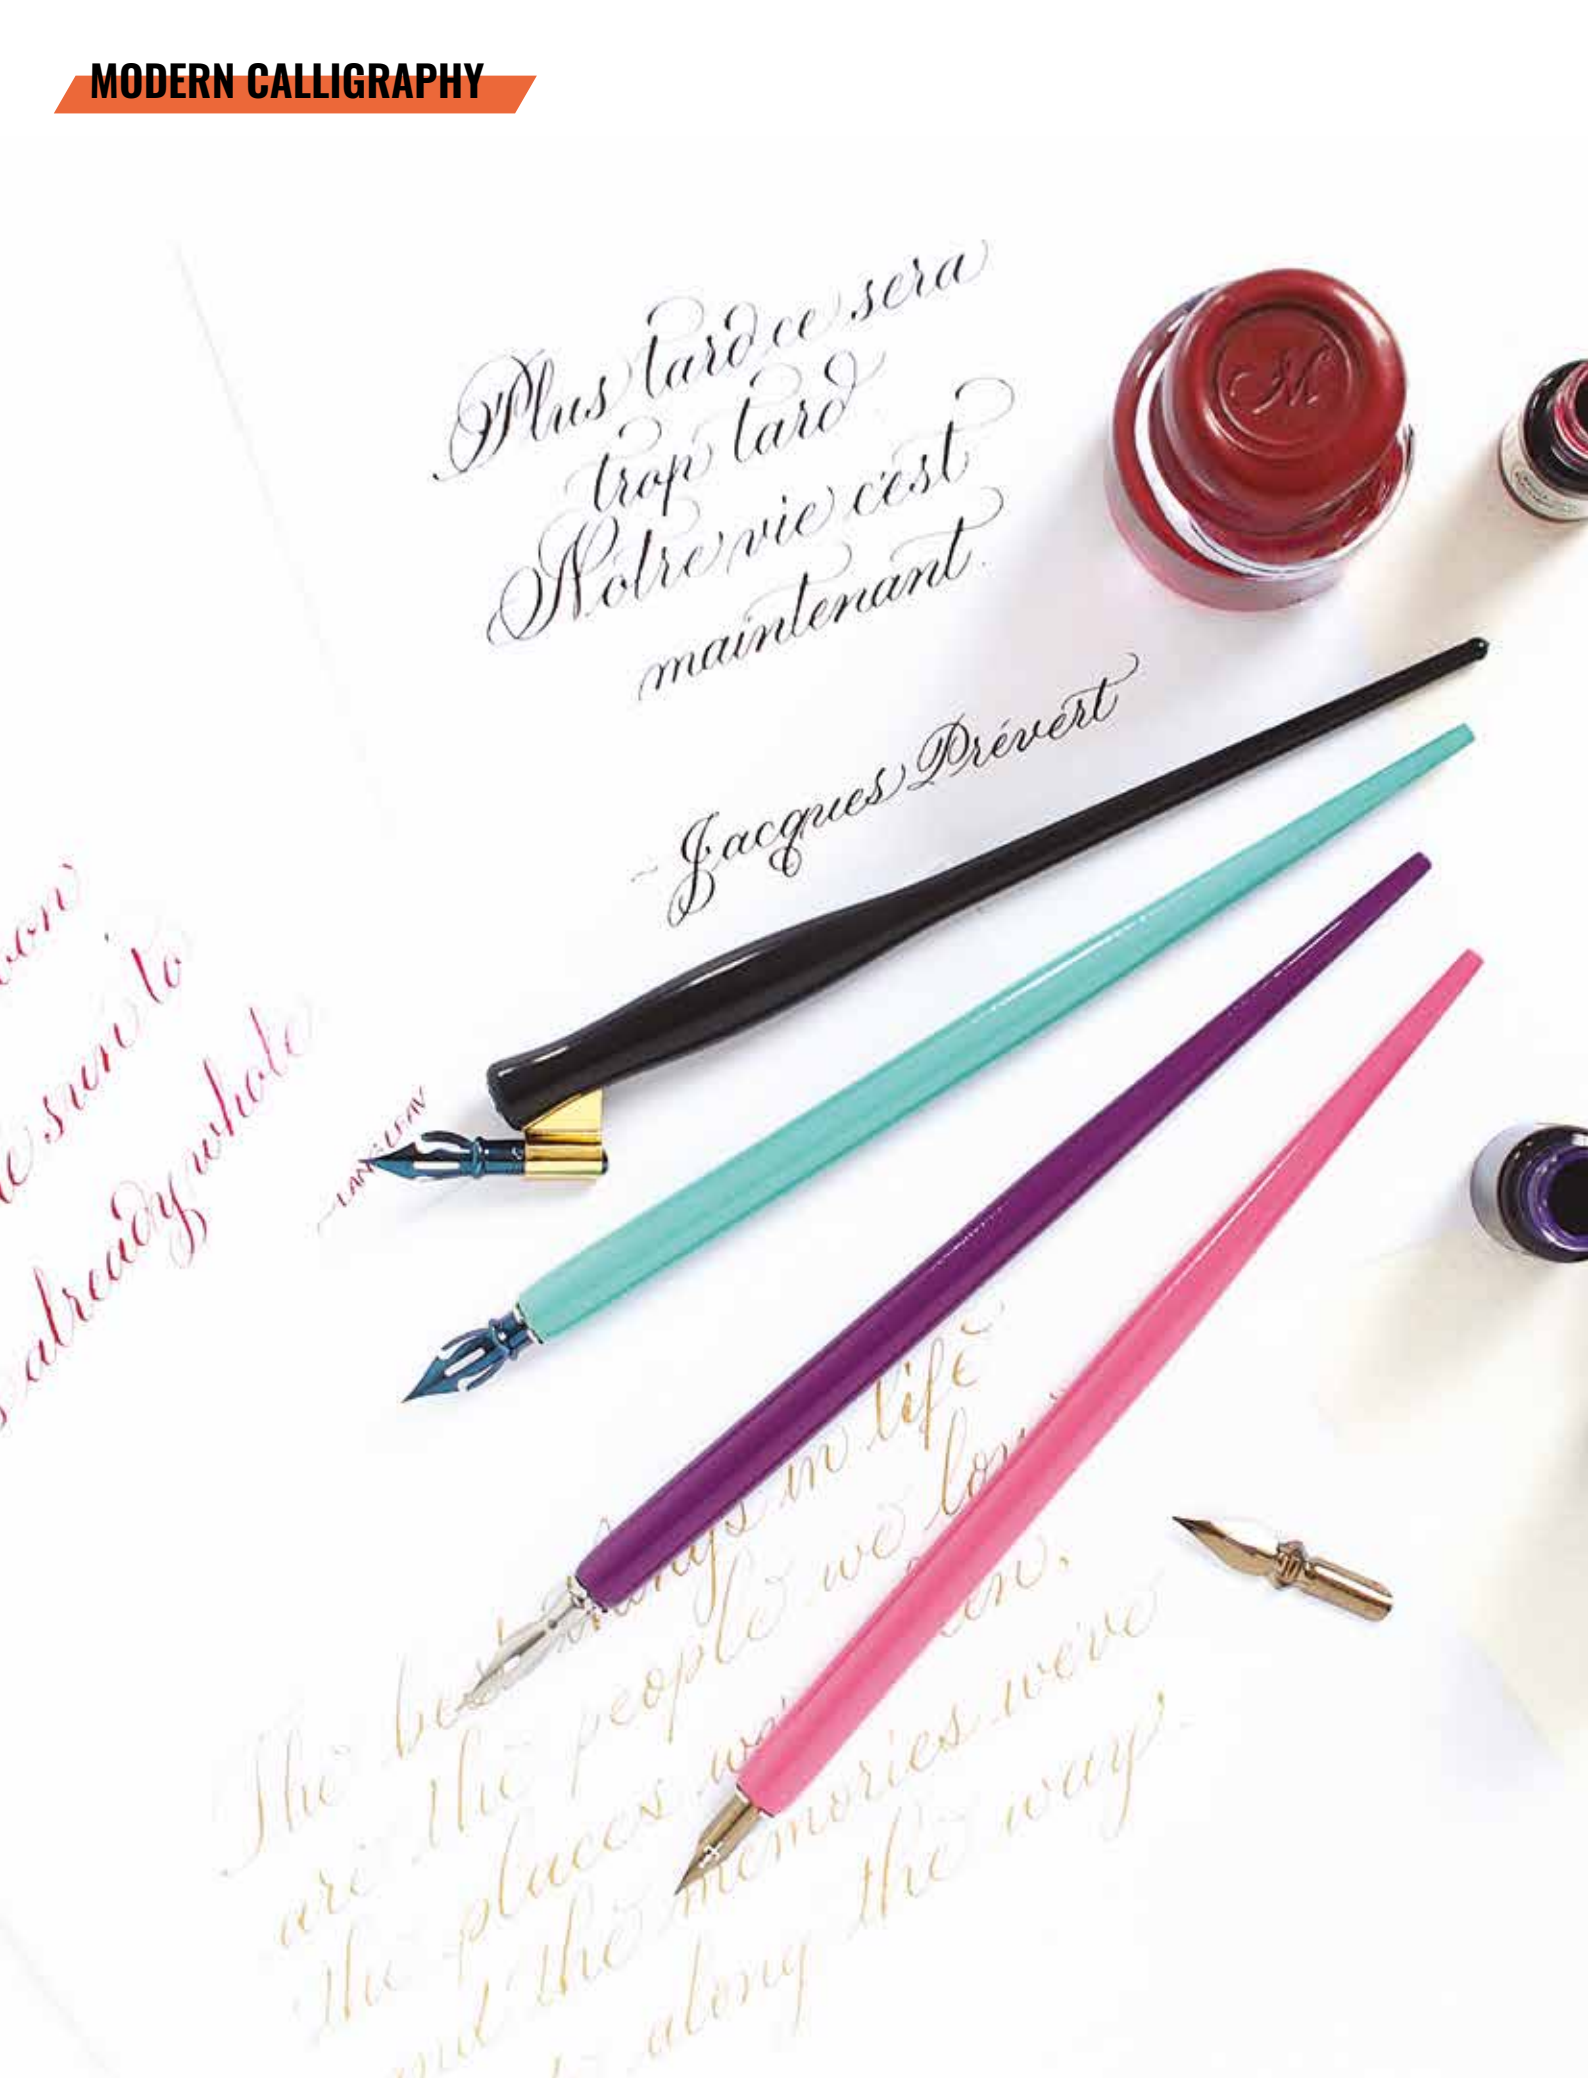 MODERN CALLIGRAPHY
Plus tard ce sera
trop tard
Notre vie c'est
maintenant.
~ Jacques Prévert
M
sun to
already whole
in life
The best things
are the people we
the places we
and the memories we've
along the way.